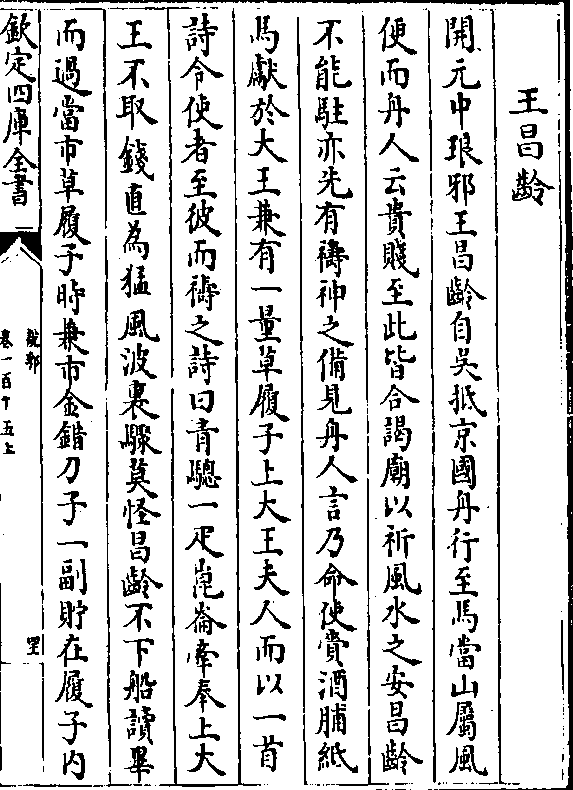 王昌齡
開元中琅邪王昌齡自吳抵京國舟行至馬當山屬風
便而舟人云貴賤至此皆合謁廟以祈風水之安昌齡
不能駐亦先有禱神之備見舟人言乃命使賫酒脯紙
馬獻於大王兼有一量草履子上大王夫人而以一首
詩令使者至彼而禱之詩曰青驄一疋崑崙牽奉上大
王不取錢直為猛風波裏驟莫怪昌齡不下船讀畢
而過當市草履子時兼市金錯刀子一副貯在履子内
欽定四庫全書
說郛
卷一百十五上